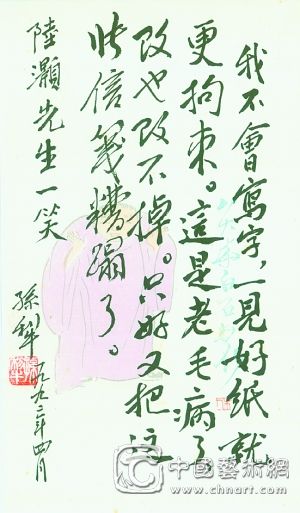 我不會寫字，一見好紙就
更拘束。這是老毛病了
改也改不掉。只好又把這
張信箋糟蹋了。
陸灝先生一笑
孫犁
一九九二年四月
中國藝術網
www.chnart.com